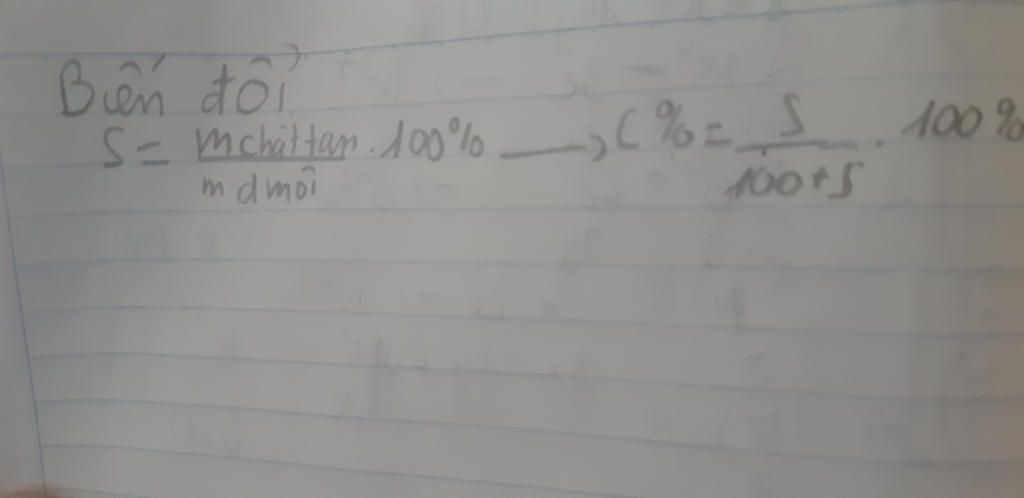 Biến đổi
S = mchất tan/m dmôi . 100% → C% = S/100+S . 100%